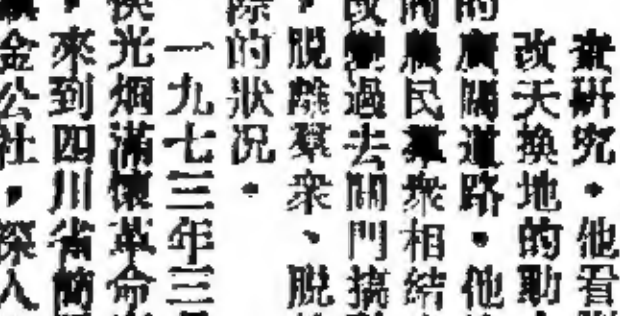 查研究。他看
改天換地的動
的廣闊道路。他
同農民羣衆相結
改變過去關門搞
，脱離羣衆、脱
際的狀况。
一九七三年三
侯光炯滿懷革命
，來到四川省簡
鎮金公社，深入